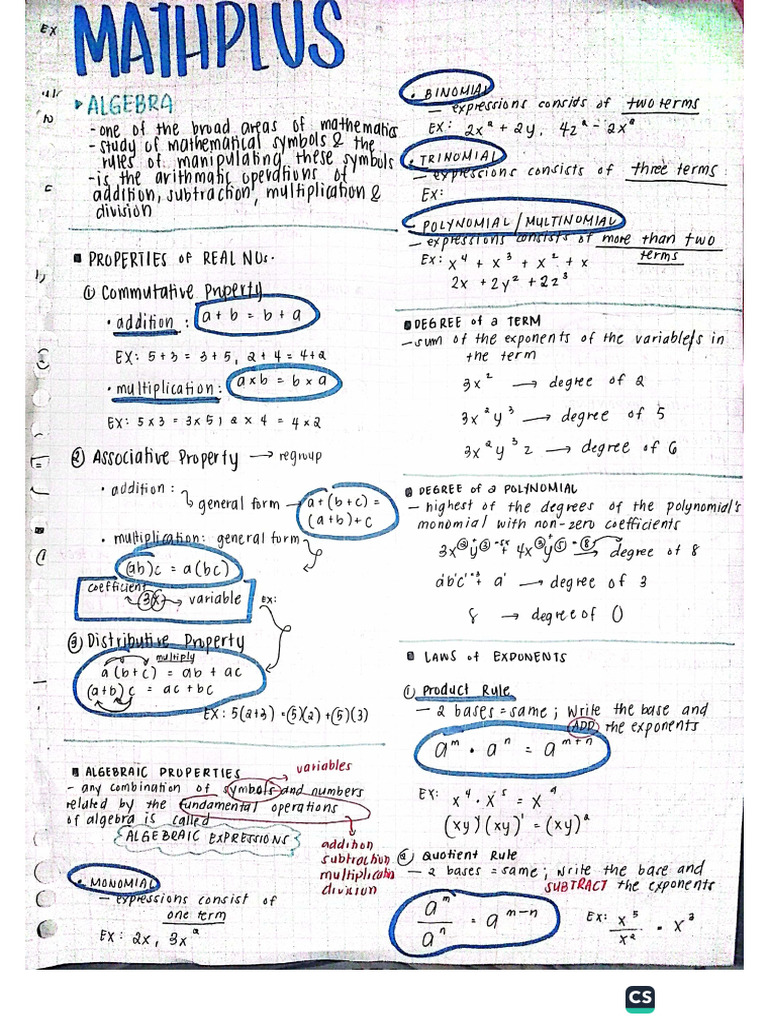 MATHPLUS
EX
▸ ALGEBRA
- one of the broad areas of mathematics
- study of mathematical symbols & the
rules of manipulating these symbols
- is the arithmatic operations of
addition, subtraction, multiplication &
division
■ PROPERTIES of REAL NOs.
① Commutative Property
• addition : a + b = b + a
EX: 5 + 3 = 3 + 5, 2 + 4 = 4 + 2
• multiplication: a x b = b x a
EX: 5 x 3 = 3 x 5, 2 x 4 = 4 x 2
② Associative Property → regroup
• addition :
general form → a + (b + c) =
(a + b) + c
• multiplication: general form
(ab)c = a(bc)
coefficient
3x → variable
EX:
③ Distributive Property
multiply
a(b + c) = ab + ac
(a + b)c = ac + bc
EX: 5(2+3) = (5)(2) + (5)(3)
■ ALGEBRAIC PROPERTIES
variables
- any combination of symbols and numbers
related by the fundamental operations
of algebra is called
ALGEBRAIC EXPRESSIONS
addition
subtraction
multiplication
division
• MONOMIAL
- expressions consist of
one term
EX: 2x, 3x²
• BINOMIAL
- expressions consists of two terms
EX: 2x² + 2y, 4z² - 2x²
• TRINOMIAL
- expressions consists of three terms
EX:
• POLYNOMIAL / MULTINOMIAL
- expressions consists of more than two
terms
EX: x⁴ + x³ + x² + x
2x + 2y² + 2z³
■ DEGREE of a TERM
- sum of the exponents of the variable/s in
the term
3x² → degree of 2
3x²y³ → degree of 5
3x²y³z → degree of 6
■ DEGREE of a POLYNOMIAL
- highest of the degrees of the polynomial's
monomial with non-zero coefficients
degree of 8
→ degree of 3
8 → degree of 0
■ LAWS of EXPONENTS
① Product Rule
- 2 bases = same ; write the base and
ADD the exponents
aᵐ • aⁿ = aᵐ⁺ⁿ
EX: x⁴ • x⁵ = x⁹
(xy)¹(xy)¹ = (xy)²
② Quotient Rule
- 2 bases = same ; write the base and
SUBTRACT the exponents
aᵐ/aⁿ = aᵐ⁻ⁿ
EX: x⁵/x² = x³
CS